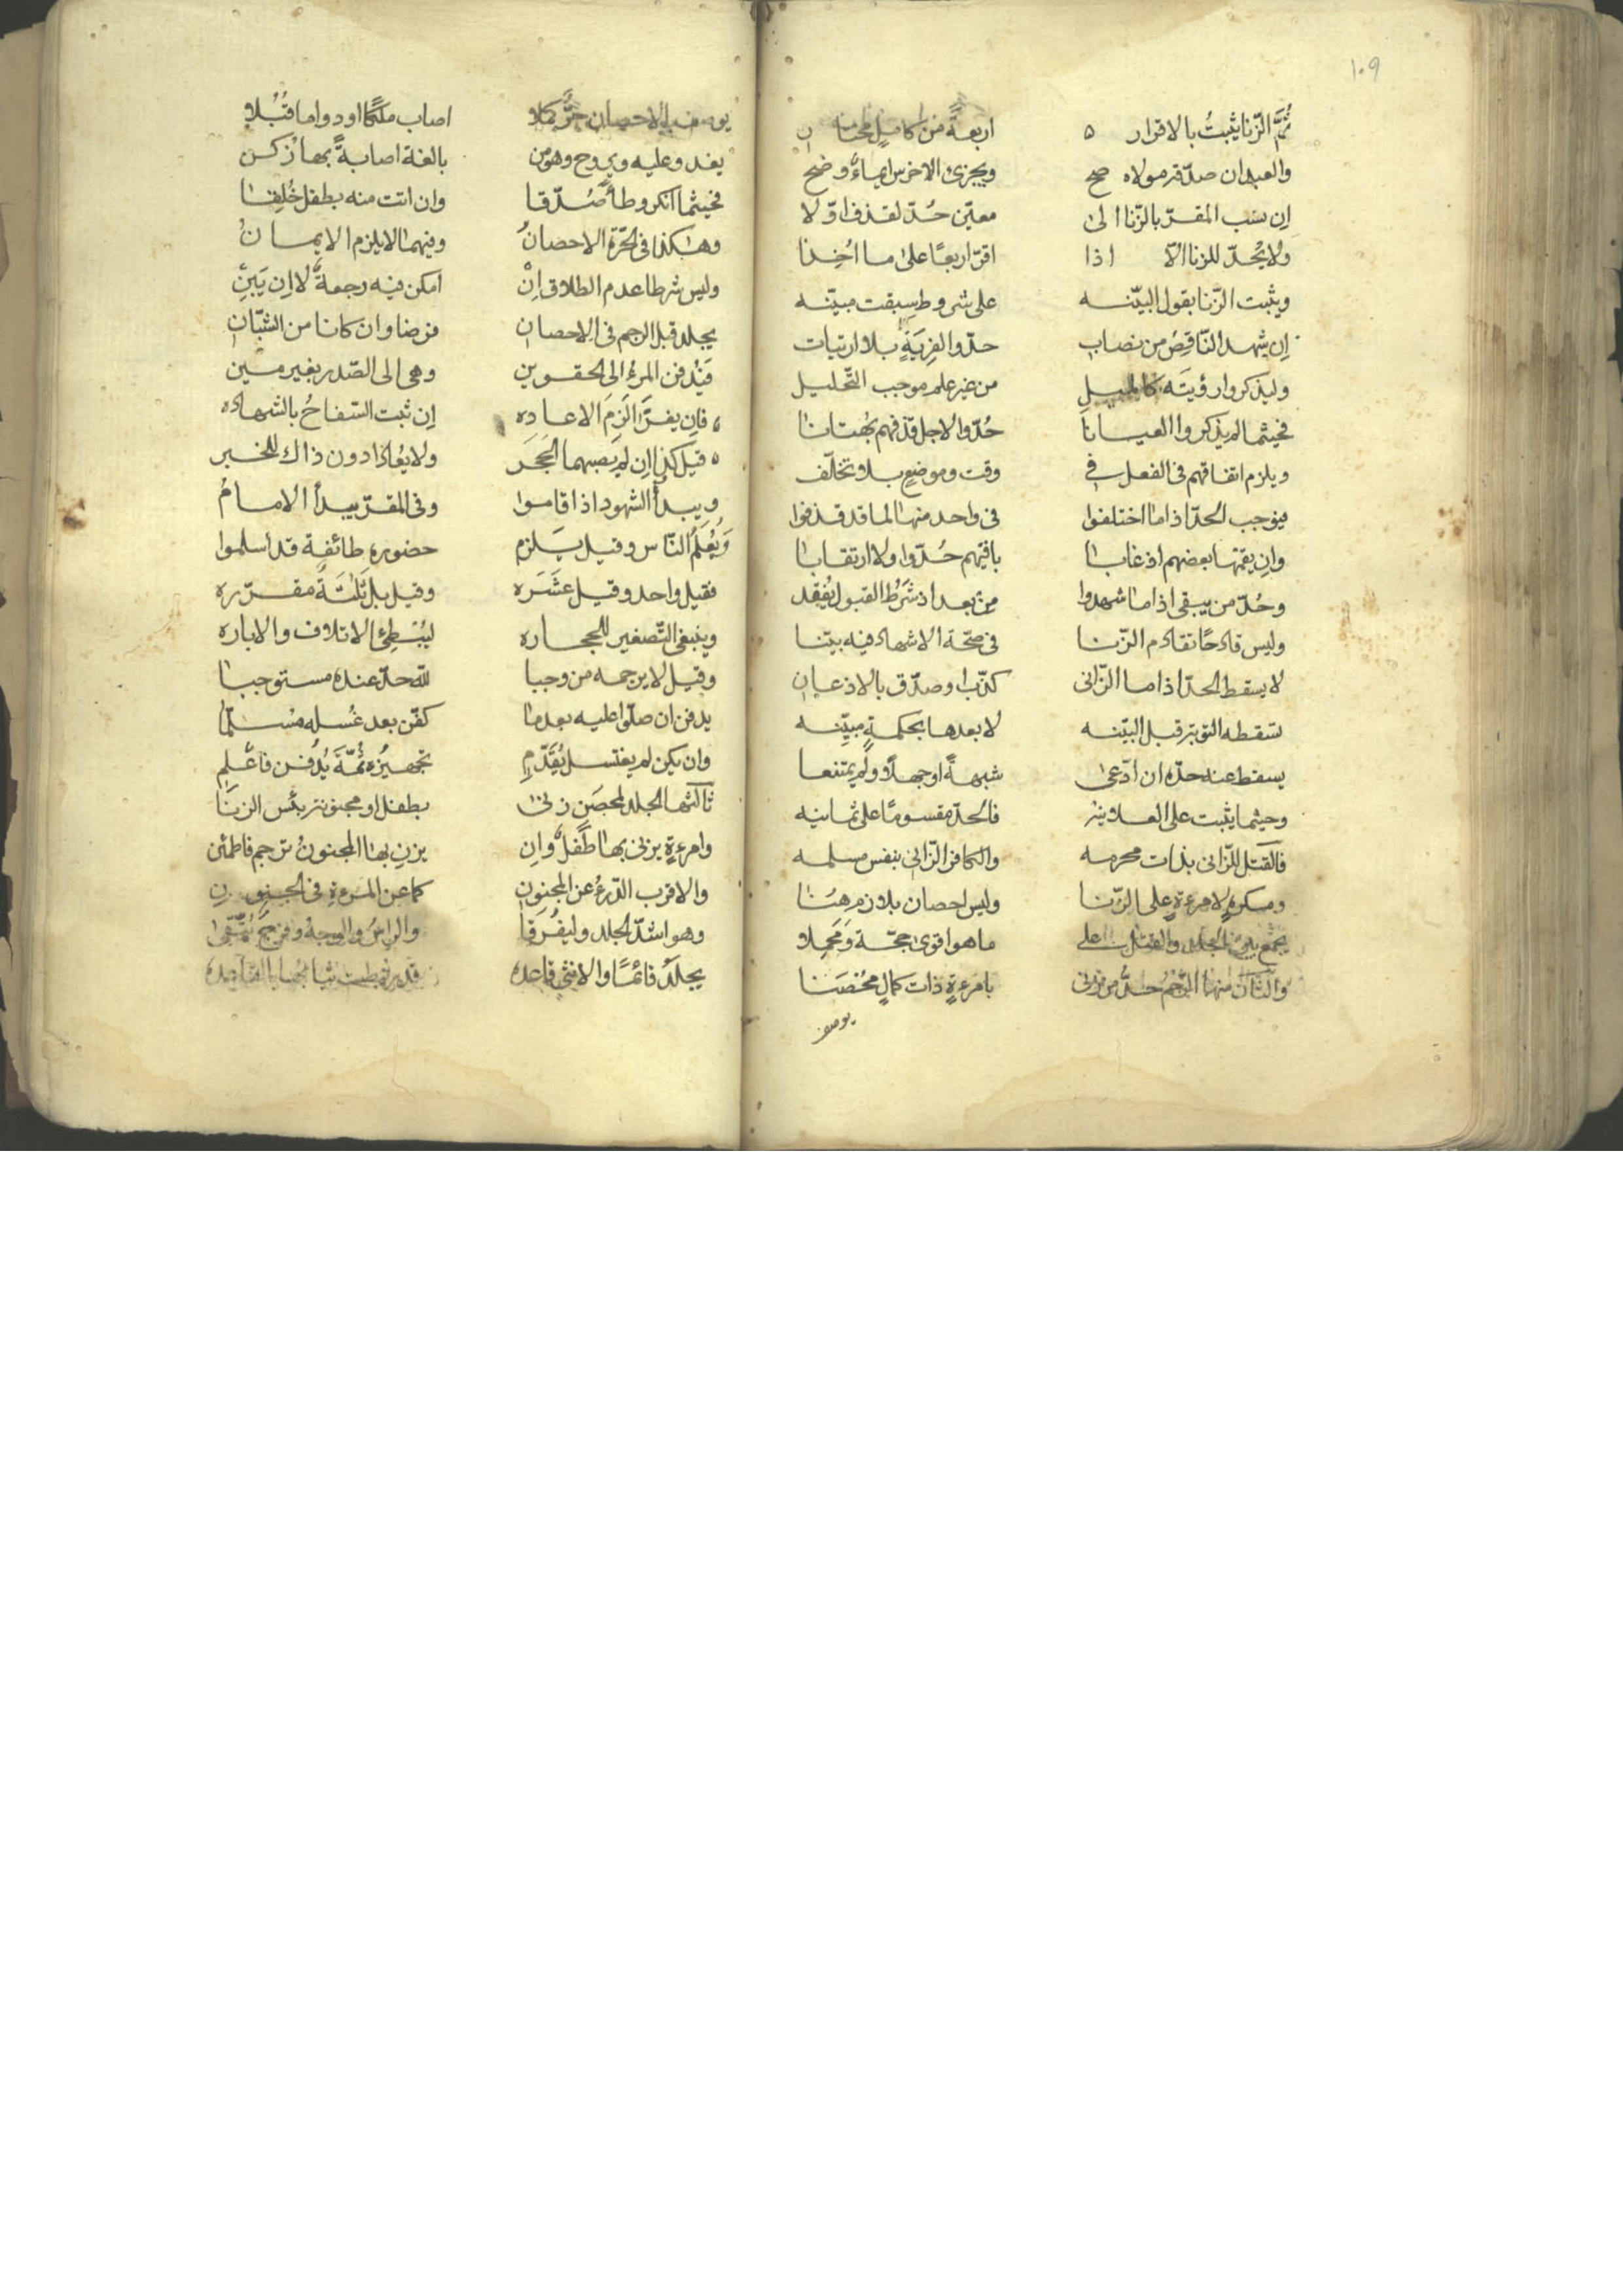 ١٠٩
ثُمَّ الزّنا يثبتُ بالاقرار ٥ اربعةً من كامل
والعبد ان صدّقه مولاه صح ويجزئ الاخرس ايماءٌ وضح
اِن نسب المقرّ بالزّنا الى معيّن حُدّ لقذف اوّلا
ولا يُحدّ للزنا الّا اذا اقرّ اربعًا على ما اُخِذا
ويثبت الزّنا بقول البيّنه على شروط سبقت مبيّنه
اِن شهد النّاقِصُ من نصاب حدّوا لفِريَةٍ بلا ارتياب
وليذكروا رؤيتَه كالميل من غير علم موجب التّحليل
فحيثما لم يذكروا العيانا حُدّوا لاجل قذفهم بُهتانا
ويلزم اتفاقهم فى الفعل فى وقت وموضع بلا تخلّف
فيوجب الحدّ اذا ما اختلفوا فى واحد منها لما قد قذفوا
وان يقمها بعضهم اذ غابا باقيهم حُدّوا ولا ارتقابا
وحُدّ من يبقى اذا ما شهدوا من بعد اذ شَرطُ القبول يُفقد
وليس قادحًا تقادم الزّنا فى صحّة الاشهاد فيه بيّنا
لا يسقط الحدّ اذا ما الزّانى كذّب او صدّق بالاذعان
تسقطه التوبة قبل البيّنه لا بعدها بحكمةٍ مبيّنه
يسقط عنه حدّه ان ادّعى شبهةً او جهلًا ولم يمتنعا
وحيثما يثبت على العلانية فالحدّ مقسومًا على ثمانيه
فالقتل للزّانى بذات محرمه والكافر الزّانى بنفس مسلمه
ومكرهٍ لامرءةٍ على الزّنا وليس احصان بلازم هُنا
يجمع بين الجلد والقتل على ما هو اقوى حجّة ومَحمِلا
والثّان منها الرّجمُ حدُّ من زنى بامرءةٍ ذات كمالٍ مُحصَنا
يوصف
يوصف بالاحصان حُرٌّ كملا اصاب ملكًا او دواما قُبُلا
يغدو عليه ويروح وهو من بالغة اصابةً بها زكن
فحيثما انكر وطأً صُدّقا وان اتت منه بطفل خُلِقا
وهكذا فى الحرّة الاحصانُ وفيهما لا يلزم الايمانُ
وليس شرطا عدم الطلاق اِنْ امكن فيه رجعةٌ لا اِن يَبِن
يجلد قبل الرجم فى الاحصان فرضا وان كانا من الشبّان
فيُدفن المرءُ الى الحقوين وهى الى الصّدر بغير مَين
فاِن يفرَّا اَلزِمَ الاعاده اِن ثبت السّفاحُ بالشهاده
قيل كذا اِن لم يصبهما الحَجَر ولا يُعادا دون ذاك للخبر
ويبدأ الشهود اذا قاموا وفى المقرّ يبدأ الامامُ
وَيُعلَمُ النّاس وقيل يَلزم حضوره طائفة قد اسلموا
فقيل واحد وقيل عشَره وقيل بل ثلثةً مقرّره
وينبغى التّصغير للحجاره ليُبطئ الاتلاف والاباره
وقيل لا يرجمه من وجبا للّه حدّ عنده مستوجبا
يدفن ان صلّوا عليه بعد ما كفّن بعد غُسله مُسلّما
وان يكن لم يغتسل يُقَدّمِ تجهيزه ثُمّةَ يُدفن فاعلم
ثالثها الجلد لمحصَنٍ زنى بطفل او مجنونة بئس الزنا
وامرءةٍ يزنى بها طفلٌ وان يزنِ بها المجنونُ ترجم فاطمئن
والاقرب الدّرءُ عن المجنون كما عن المرءة فى الجنون
وهو اشدّ الجلد وليفُرَّقا والراسُ والوجهُ وفرجٌ يُتّقى
يجلد قائمًا والانثى قاعده قد رُبطت ثيابُها